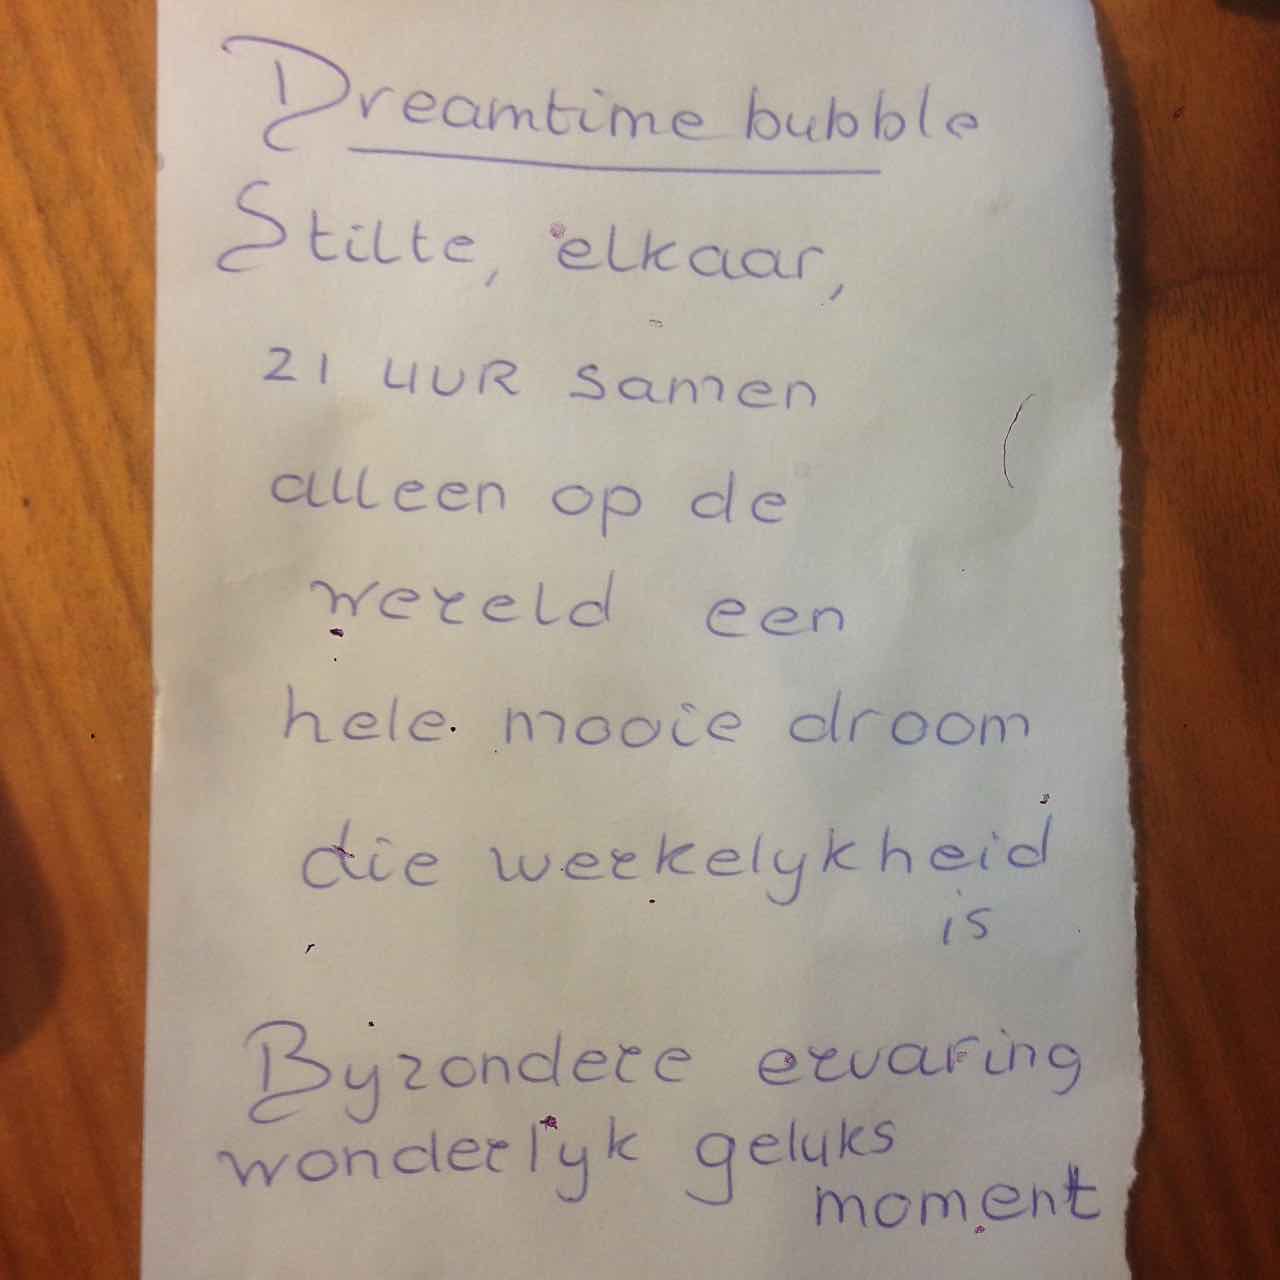 Dreamtime bubble
Stilte, elkaar,
21 UUR samen
alleen op de
wereld een
hele mooie droom
die werkelykheid
is
Byzondere ervaring
wonderlyk geluks
moment